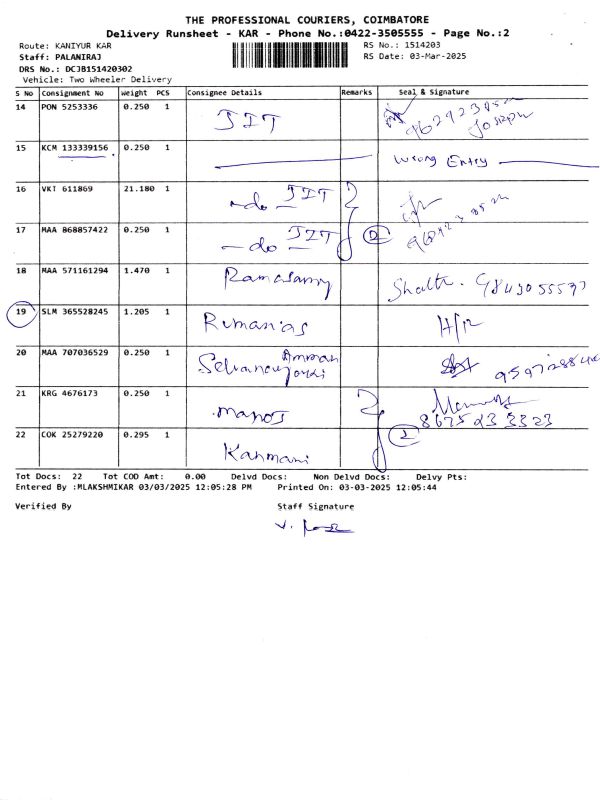 THE PROFESSIONAL COURIERS, COIMBATORE
Delivery Runsheet - KAR - Phone No.:0422-3505555 - Page No.:2
Route: KANIYUR KAR
RS No.: 1514203
Staff: PALANIRAJ
RS Date: 03-Mar-2025
DRS No.: DCJB151420302
Vehicle: Two Wheeler Delivery
S No Consignment No Weight PCS Consignee Details Remarks Seal & Signature
14 PON 5253336 0.250 1 JIT Joseph
15 KCM 133339156 0.250 1 Wrong Entry
16 VKT 611869 21.180 1 -do JIT
17 MAA 868857422 0.250 1 -do JIT 2
18 MAA 571161294 1.470 1 Ramasamy
19 SLM 365528245 1.205 1 H/R
20 MAA 707036529 0.250 1 Amman
21 KRG 4676173 0.250 1 manoj 8675233323
22 COK 25279220 0.295 1 Kanmani 2
Tot Docs: 22 Tot COD Amt: 0.00 Delvd Docs: Non Delvd Docs: Delvy Pts:
Entered By :MLAKSHMIKAR 03/03/2025 12:05:28 PM Printed On: 03-03-2025 12:05:44
Verified By Staff Signature